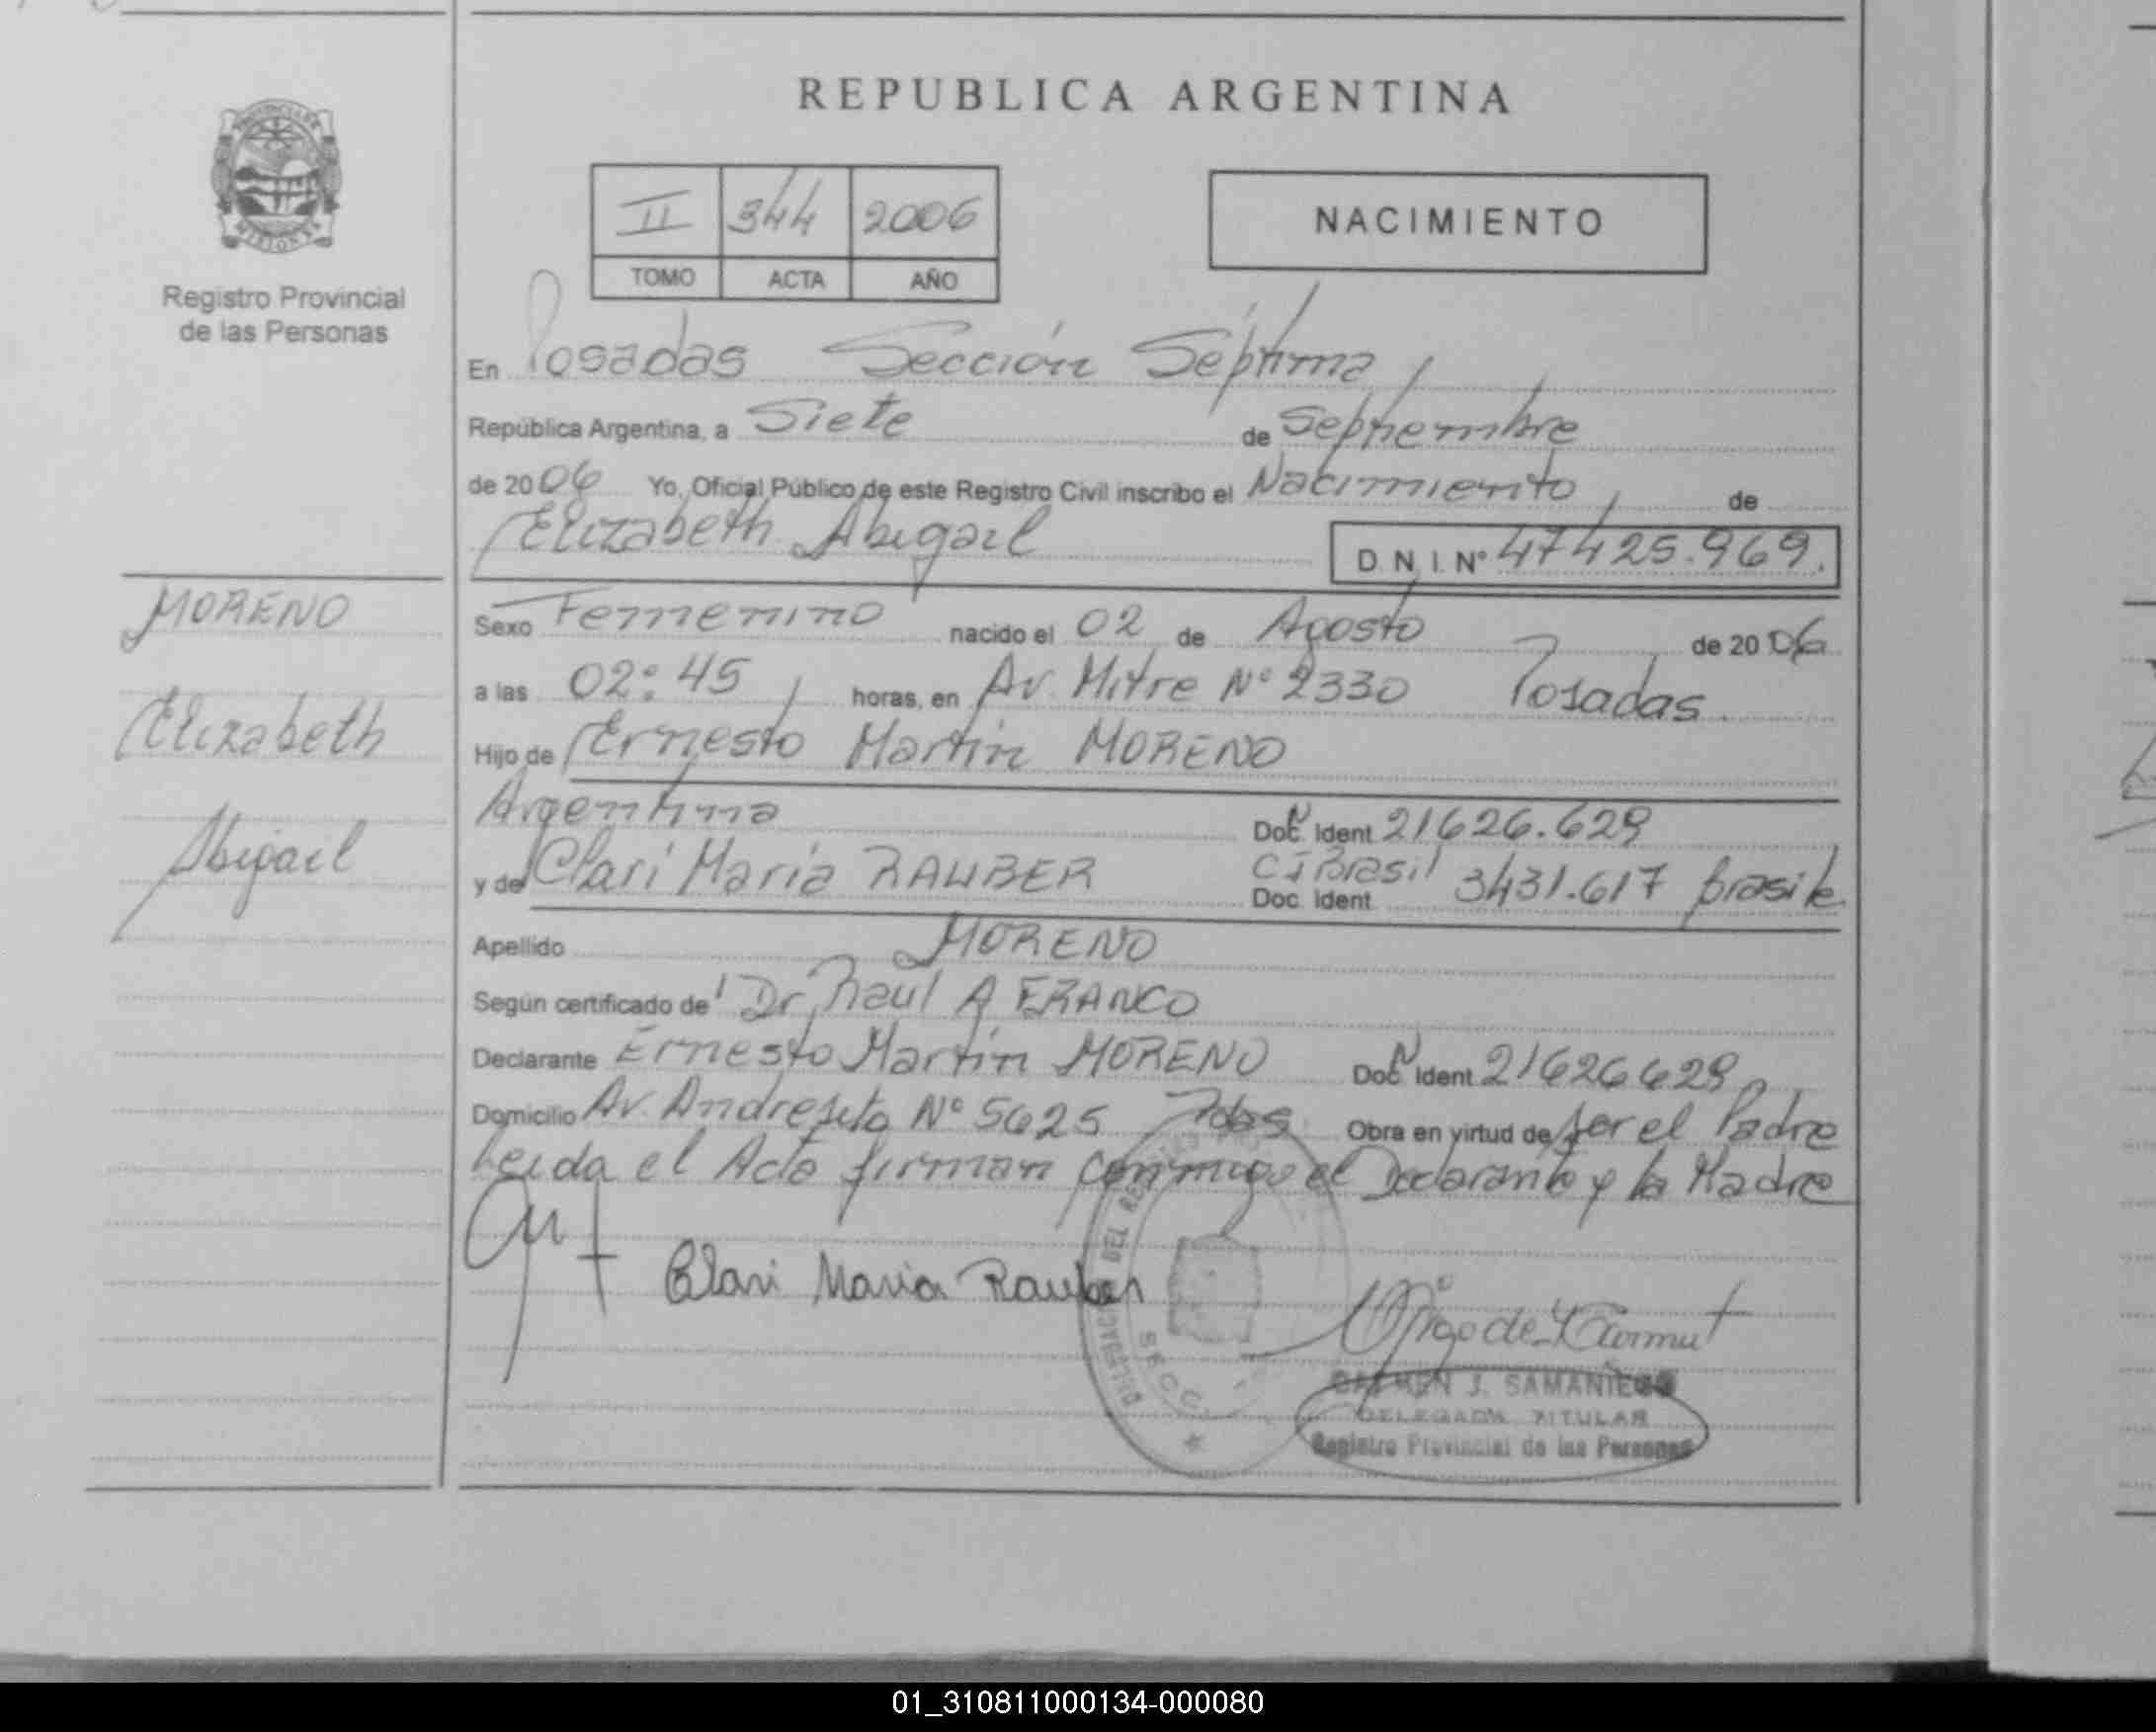 REPUBLICA ARGENTINA
PROVINCIA DE MISIONES
Registro Provincial
de las Personas
II 344 2006
TOMO ACTA AÑO
NACIMIENTO
En Posadas Sección Séptima
República Argentina, a Siete de Septiembre
de 2006 Yo, Oficial Público de este Registro Civil inscribo el Nacimiento de
Elizabeth Abigail D.N.I. Nº 47425.969.
MORENO
Elizabeth
Abigail
Sexo Femenino nacido el 02 de Agosto de 2006
a las 02:45 horas, en Av. Mitre Nº 2330 Posadas
Hijo de Ernesto Martín MORENO
Argentina Doc. Ident 21626.629
y de Clari Maria RAUBER CI Brasil Doc. Ident 3431.617 brasile
Apellido MORENO
Según certificado de Dr Raul A FRANCO
Declarante Ernesto Martín MORENO Doc. Ident 21626629
Domicilio Av. Andresito Nº 5625 Pdas Obra en virtud de ser el Padre
Leida el Acta firman conmigo el Declarante y la Madre
Clari Maria Rauber
CARMEN J. SAMANIEGO
DELEGADA TITULAR
Registro Provincial de las Personas
01_310811000134-000080